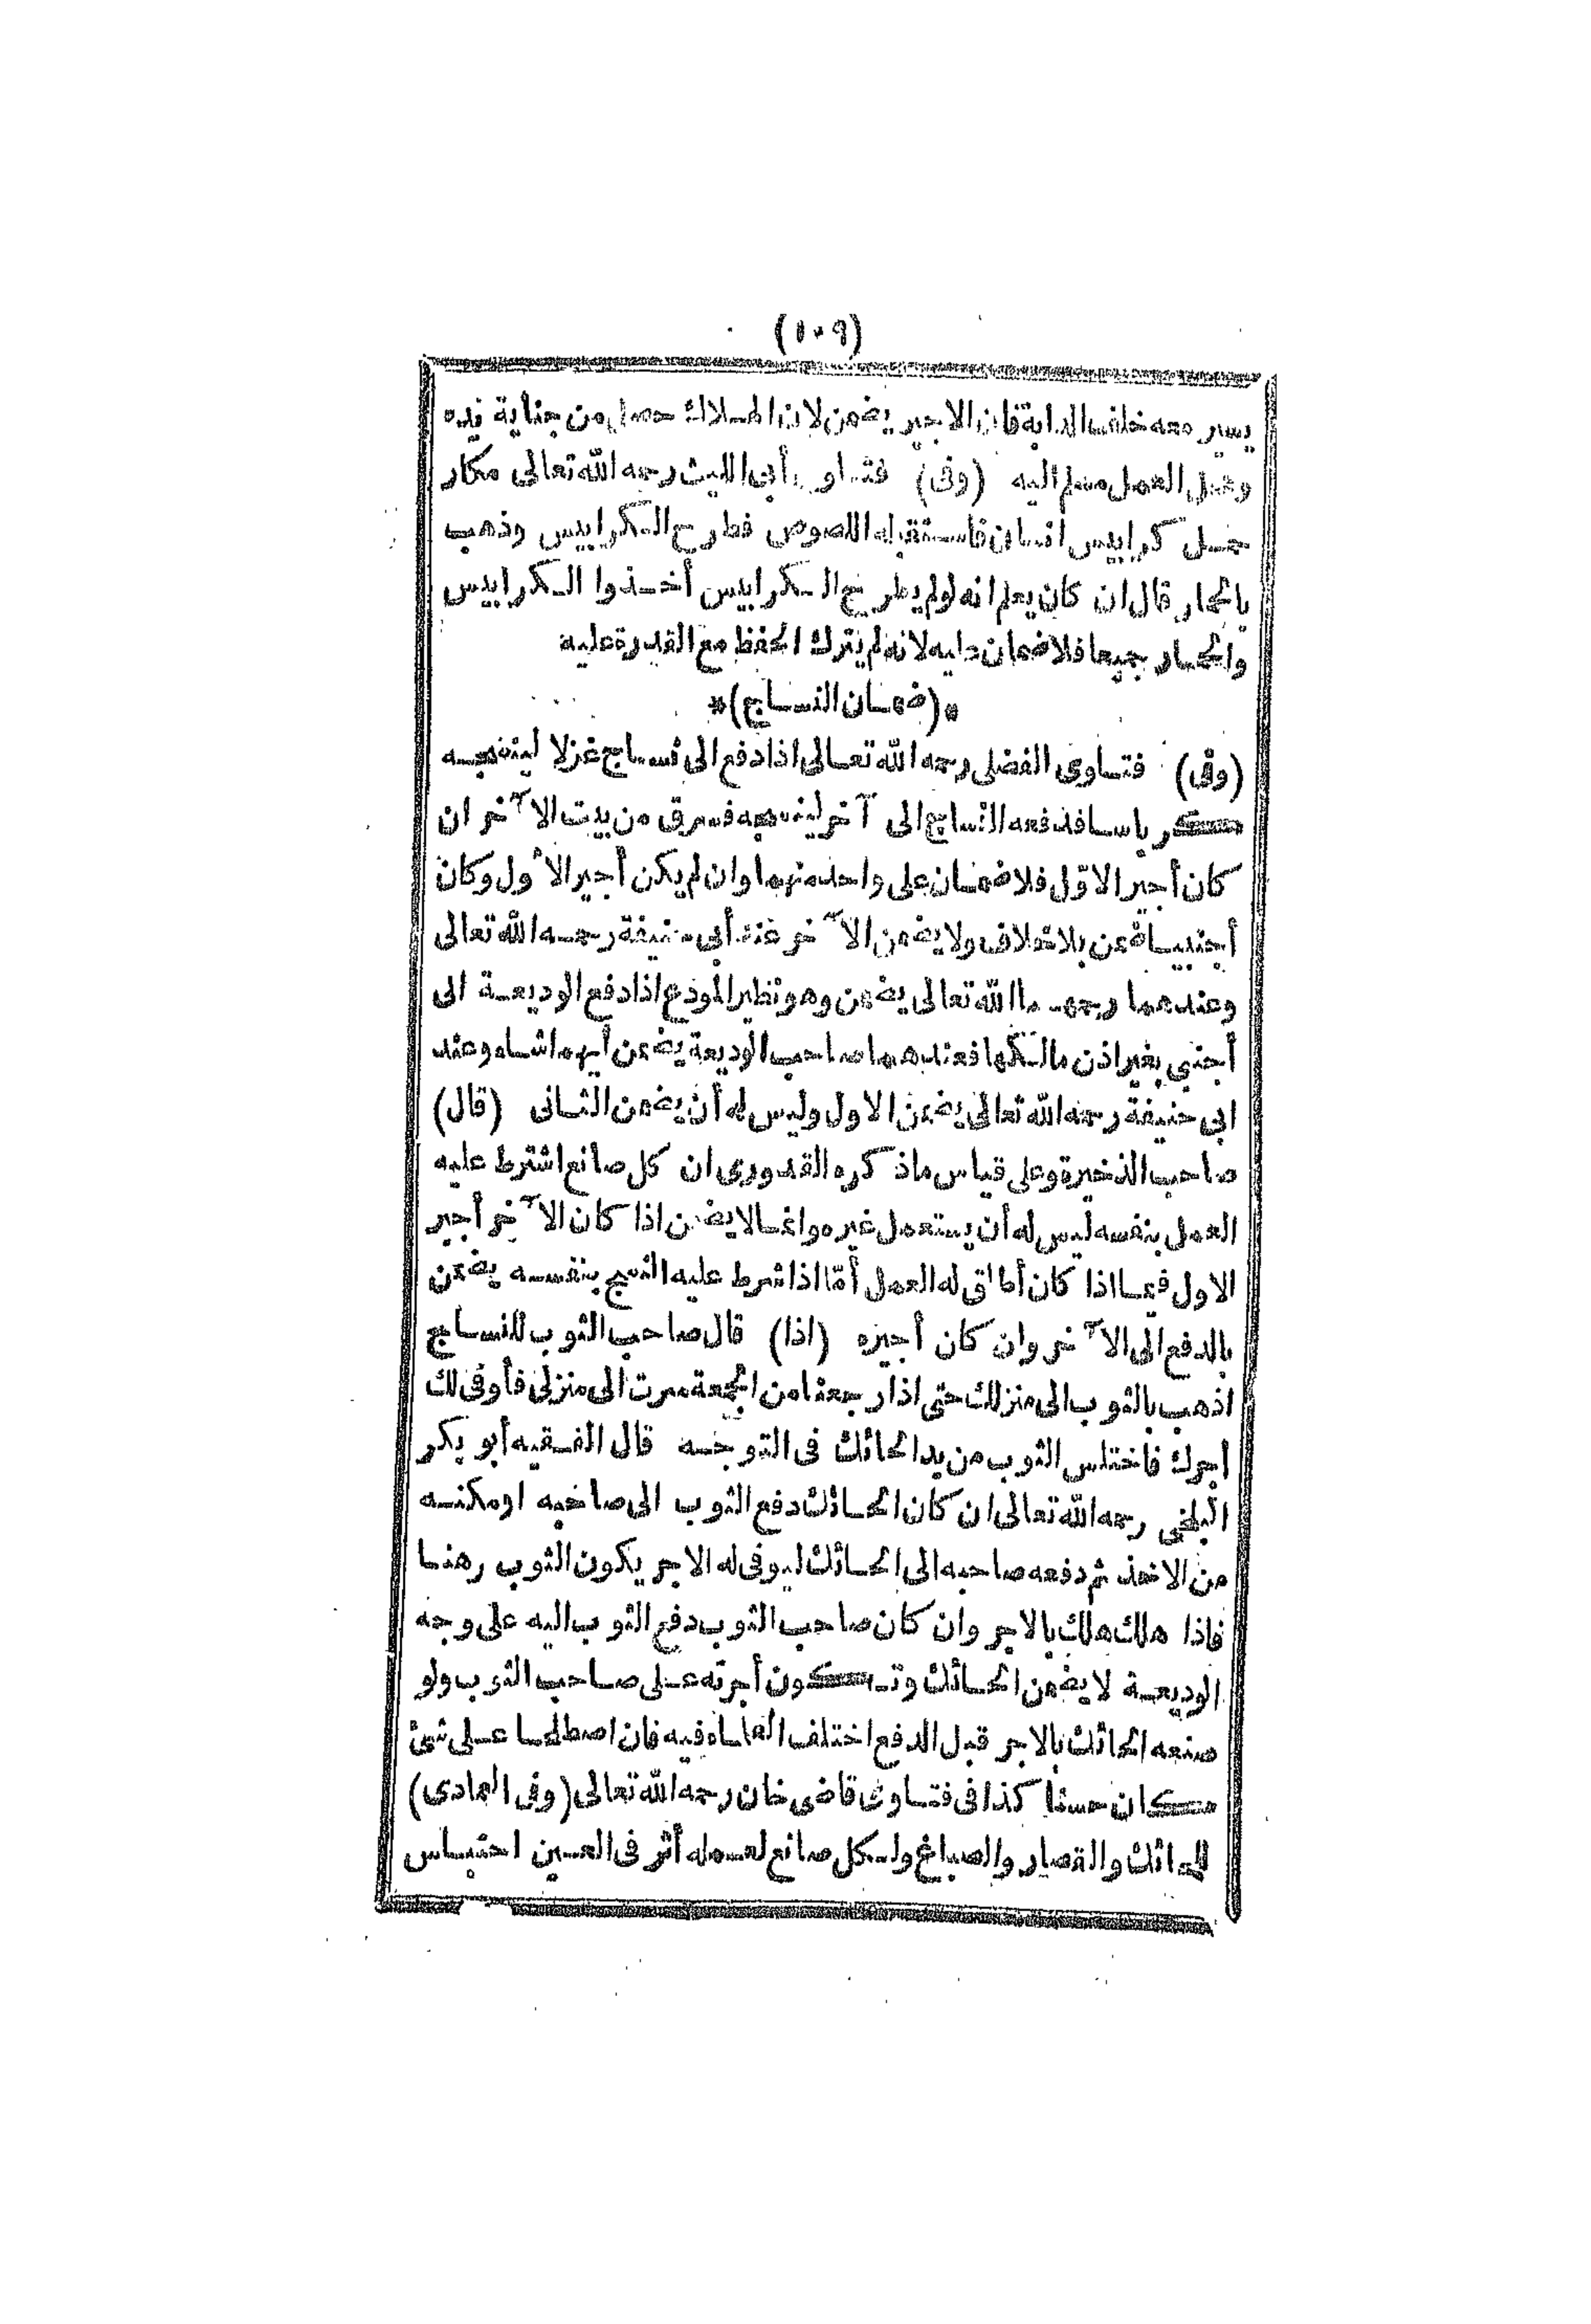 (١٠٩)
يسير معه خلف الدابة فان الاجير يضمن لان الهلاك حصل من جناية يده
ومحل العمل مسلم اليه (وفى) فتاوى أبى الليث رحمه الله تعالى مكار
حمل كرابيس انسان فاستقبله اللصوص فطرح الكرابيس وذهب
بالحمار قال ان كان يعلم انه لو لم يطرح الكرابيس أخذوا الكرابيس
والحمار جميعا فلا ضمان عليه لانه لم يترك الحفظ مع القدرة عليه
*(ضمان النساج)*
(وفى) فتاوى الفضلى رحمه الله تعالى اذا دفع الى نساج غزلا لينسجه
كرباسا فدفعه النساج الى آخر لينسجه فسرق من بيت الآخر ان
كان أجير الاول فلا ضمان على واحد منهما وان لم يكن أجير الأول وكان
أجنبيا ضمن بلا خلاف ولا يضمن الآخر عند أبى حنيفة رحمه الله تعالى
وعندهما رحمهما الله تعالى يضمن وهو نظير المودع اذا دفع الوديعة الى
أجنبى بغير اذن مالكها فعندهما صاحب الوديعة يضمن أيهما شاء وعند
ابى حنيفة رحمه الله تعالى يضمن الاول وليس له أن يضمن الثانى (قال)
صاحب الذخيرة وعلى قياس ماذكره القدورى ان كل صانع اشترط عليه
العمل بنفسه ليس له أن يستعمل غيره وانما لا يضمن اذا كان الآخر أجير
الاول فيما اذا كان أطلق له العمل أمّا اذا شرط عليه النسج بنفسه يضمن
بالدفع الى الآخر وان كان أجيره (اذا) قال صاحب الثوب للنساج
اذهب بالثوب الى منزلك حتى اذا رجعنا من الجمعة سرت الى منزلى فأوفى لك
أجرك فاختلس الثوب من يد الحائك فى التوجه قال الفقيه أبو بكر
البلخى رحمه الله تعالى ان كان الحائك دفع الثوب الى صاحبه او مكنه
من الاخذ ثم دفعه صاحبه الى الحائك ليوفى له الاجر يكون الثوب رهنا
فاذا هلك هلك بالاجر وان كان صاحب الثوب دفع الثوب اليه على وجه
الوديعة لا يضمن الحائك وتكون أجرته على صاحب الثوب ولو
منعه الحائك بالاجر قبل الدفع اختلف العلماء فيه فان اصطلحا على شئ
كان حسنا كذا فى فتاوى قاضى خان رحمه الله تعالى (وفى العمادى)
للحائك والقصار والصباغ ولكل صانع لعمله أثر فى العين احتباس